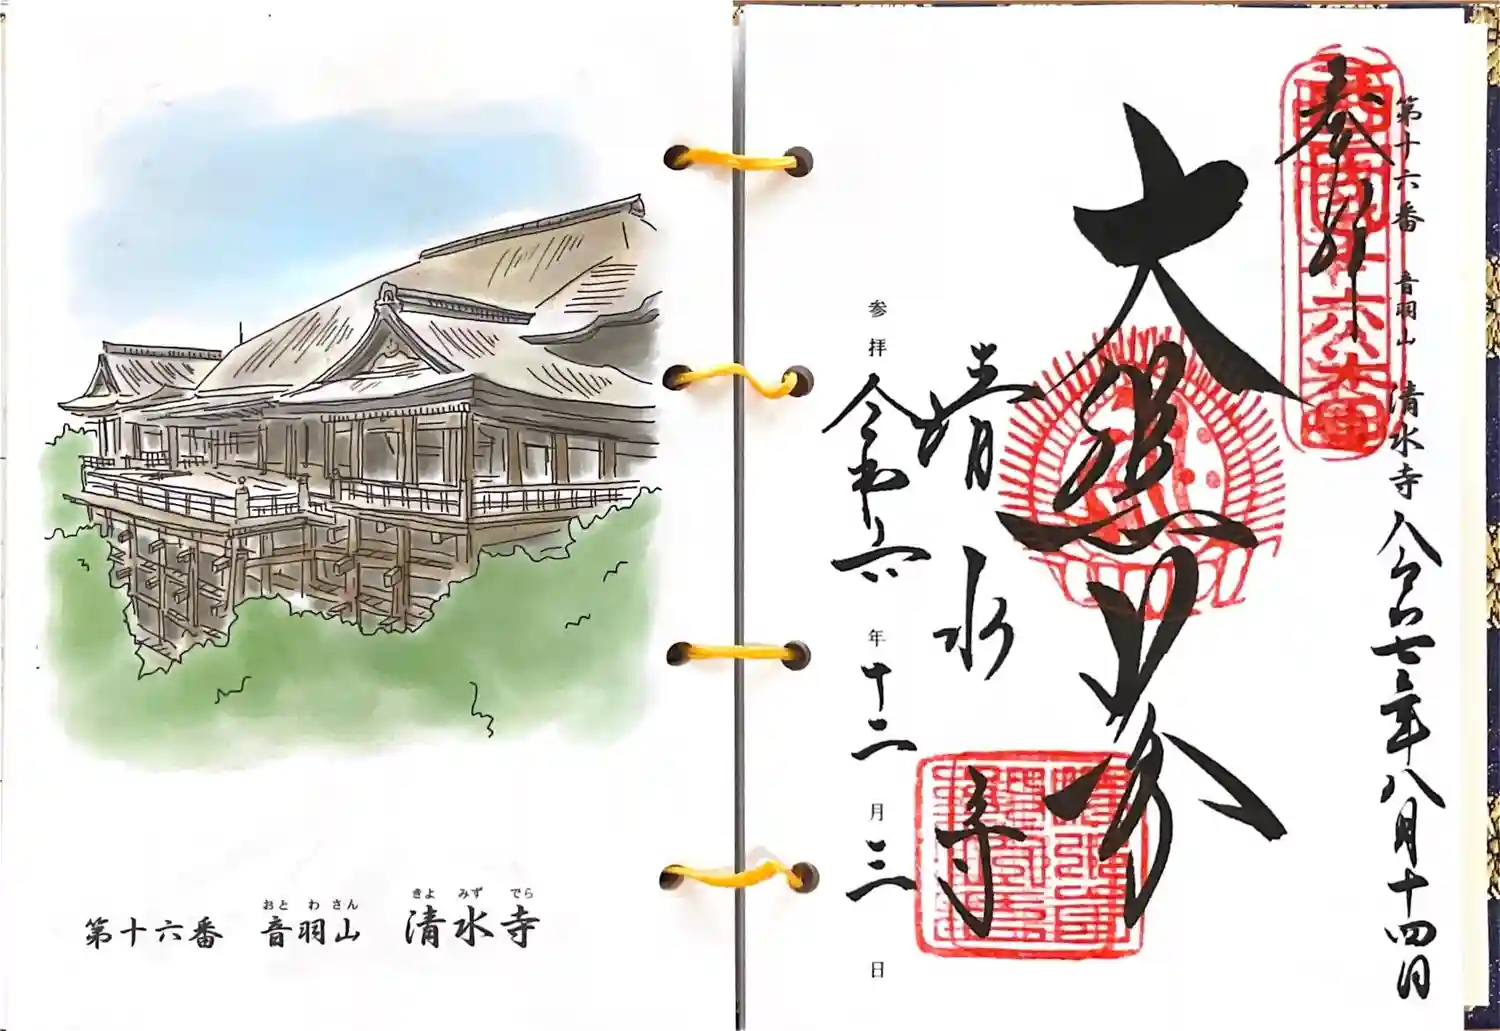 おとわさん きよみずでら
第十六番 音羽山 清水寺
第十六番 音羽山 清水寺
令和七年八月十四日
奉拝
大悲閣
清水寺
参拝 令和六年十二月三日